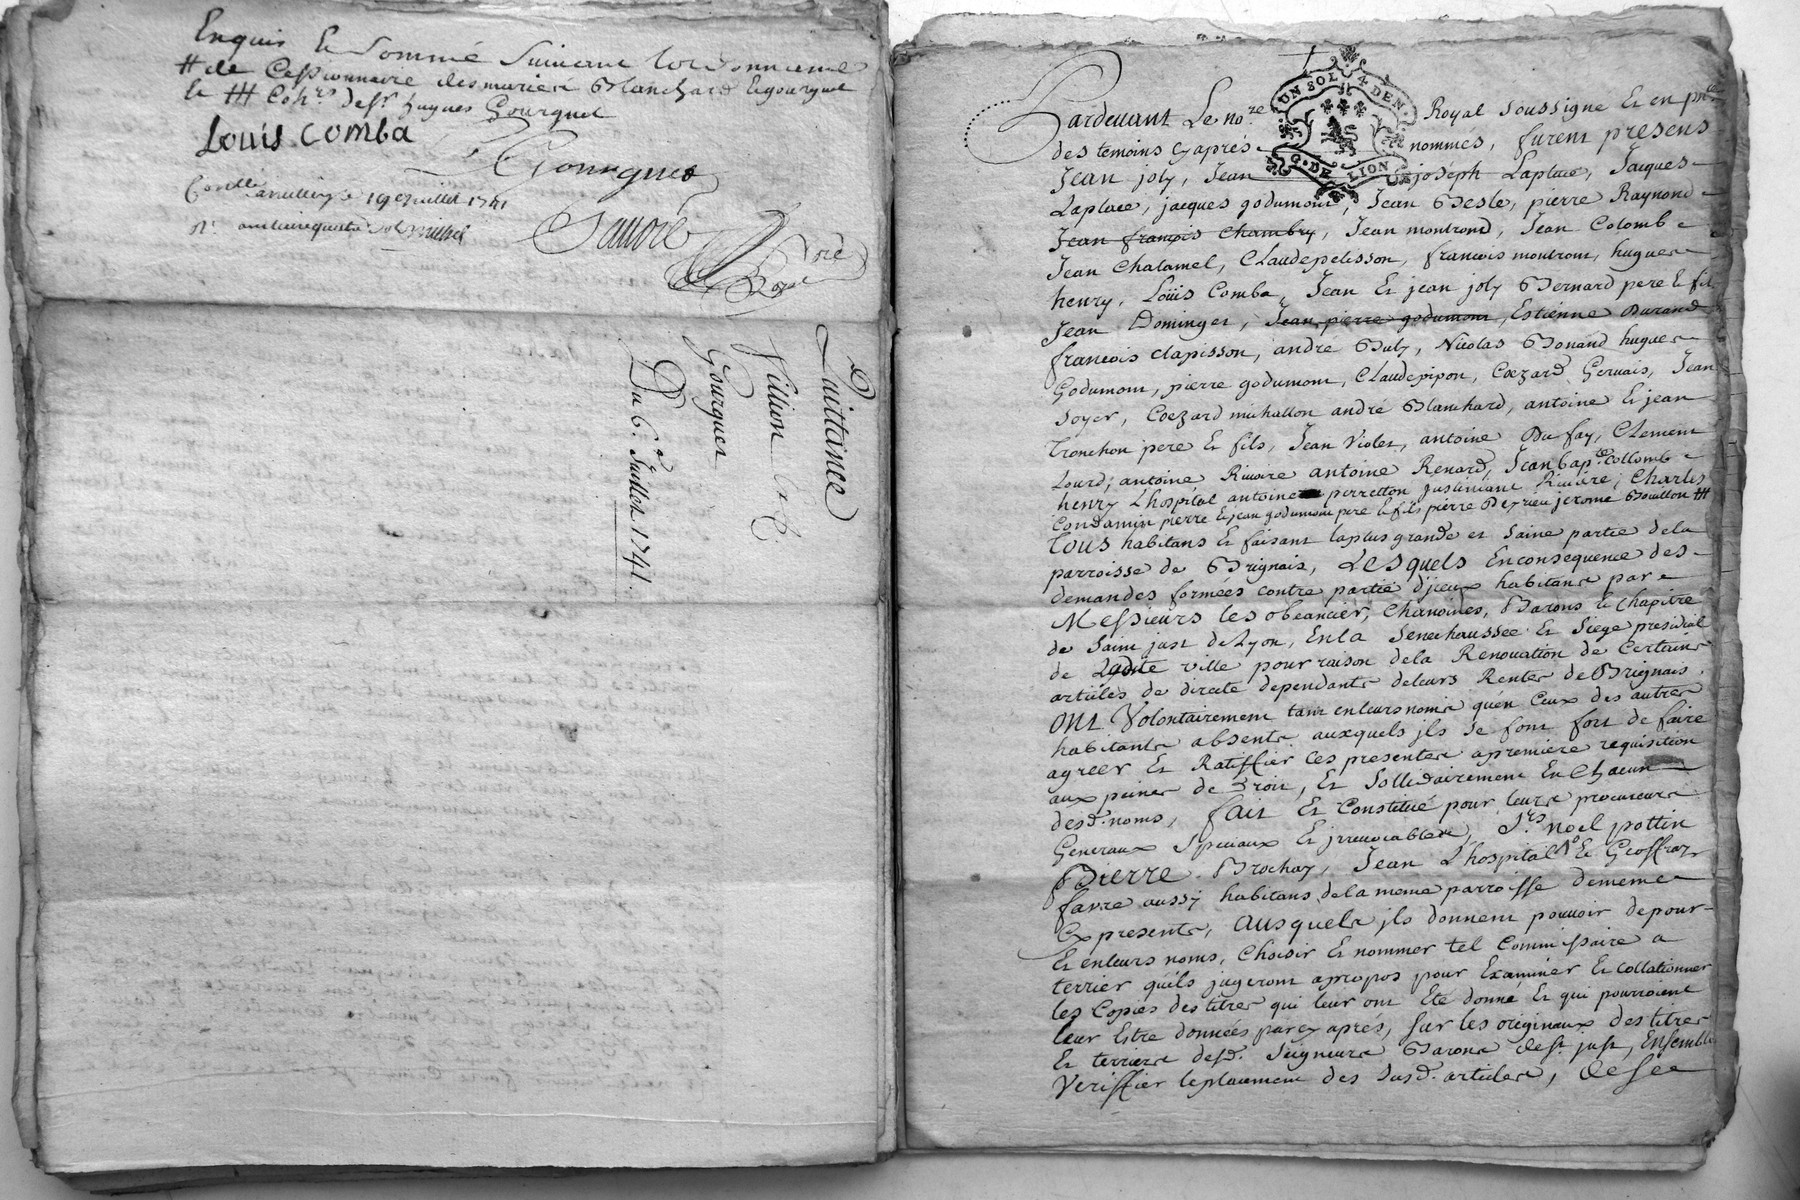 Enquis Et Sommé Suivant l'ordonnance
# de Cessionnaire des mariés Blanchard Egourguet
le ## Cohrs. desr. hugues Gourguet
Louis Comba
Gourguet
19e Juillet 1741
Sauvré
Royal
Quittance
Villion
Gourguet
Du 6e. Juillet 1741.
UN SOL 4 DEN.
G. DE LION
Pardevant Le nore. Royal soussigné Et en pnce.
des temoins cy aprés nommés, furent presens
Jean joly, Jean joséph Laplace, Jacques
Laplace, jacques godumont, Jean Besle, pierre Raynond
Jean françois Chambry, Jean montrond, Jean Colomb
Jean Chalamel, Claude pelisson, francois montrond, hugues
henry, Loüis Comba, Jean Et jean joly Bernard pere & fils
Jean Dominget, Jean pierre godumont, Estienne Durand
francois clapisson, andré Buly, Nicolas Bonand hugues
Godumont, pierre godumont, Claude pipon, Coezard Gervais, Jean
Soyer, Coezard michallon andré Blanchard, antoine Et jean
Tronchon pere Et fils, Jean Violet, antoine Du fay, Clement
Lourd, antoine Riviere antoine Renard, Jean bapte. Collomb
henry Lhospital antoine perretton justinient Riviere, Charles
Condamin pierre Et jean godumont pere & fils pierre Dezrieu jerome Bouillon ##
tous habitans Et faisant la plus grande et Saine partie de la
parroisse de Brignais, Lesquels En consequence des
demandes formées contre partie d'jceux habitans par
Messieurs les obeancier, Chanoines, Barons & chapitre
de Saint just de Lyon, En la Senechaussée Et Siege presidial
de Ladite ville pour raison de la Renovation de Certains
articles de directe dependants de leurs Rentes de Brignais.
ont Volontairement tant en leurs noms qu'en Ceux des autres
habitants absents auxquels jls se font fort de faire
agréer Et Ratiffier Ces presentes a premiere requisition
aux peines de Droit, Et Sollidairement En Chacun
desd. noms, fait Et Constitué pour leurs procureurs
Generaux Speciaux Et jrrevocables, Srs. noel pottin
Pierre Brochay, Jean Lhospital Et Geoffray
favre aussy habitans de la meme parroisse de meme
Cy presents, Ausquels jls donnent pouvoir de pour
Et en leurs noms, Choisir Et nommer tel Commissaire a
terrier qu'ils jugeront apropos pour Examiner Et collationner
les Copies des titres qui leur ont Eté donné Et qui pourroient
leur Estre données par cy aprés, Sur les originaux des titres
Et terriers desd. Seigneurs Barons de st. just, Ensemble
Veriffier le placement des Susd. articles, de se